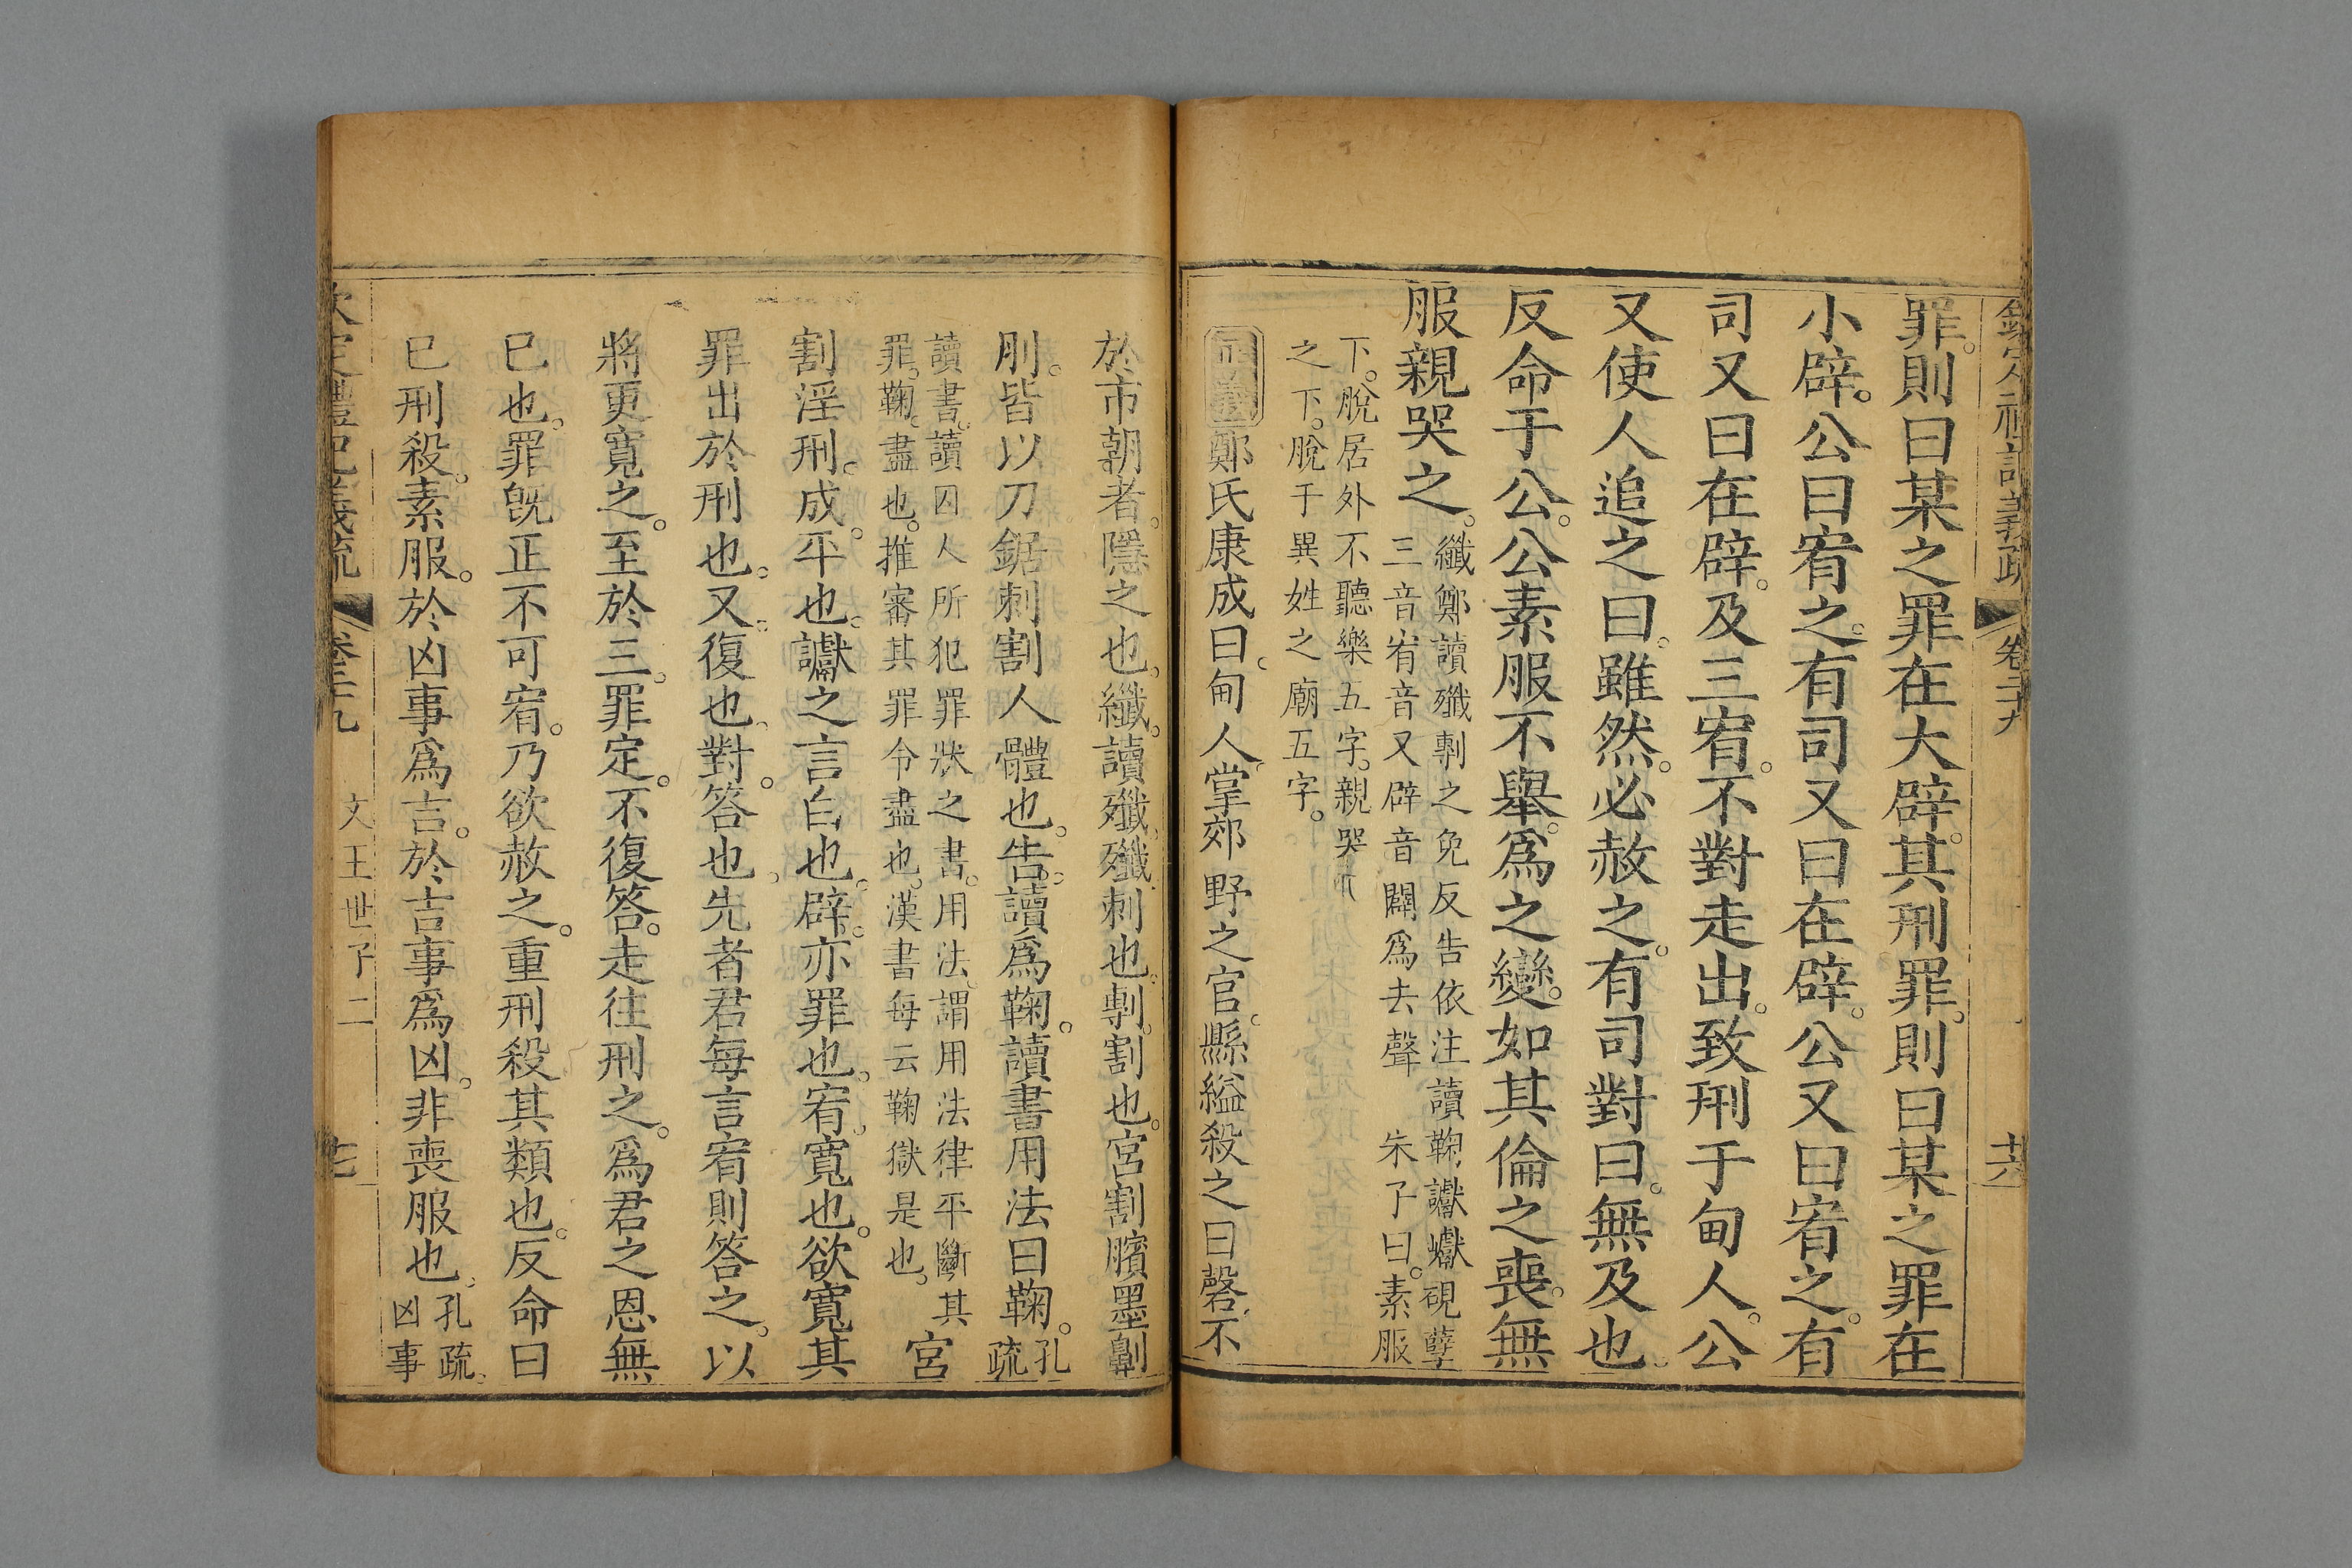 欽定禮記義疏 卷二十九 十六
罪。則曰某之罪在大辟。其刑罪。則曰某之罪在
小辟。公曰宥之。有司又曰在辟。公又曰宥之。有
司又曰在辟。及三宥。不對走出。致刑于甸人。公
又使人追之曰。雖然。必赦之。有司對曰。無及也。
反命于公。公素服不舉。爲之變。如其倫之喪。無
服親哭之。
纖鄭讀殲剸之免反告依注讀鞫讞巘硯孽
三音宥音又辟音闢爲去聲 朱子曰。素服
下。脫居外不聽樂五字。親哭
之下。脫于異姓之廟五字。
正義鄭氏康成曰。甸人。掌郊野之官。縣縊殺之曰磬。不
於市朝者。隱之也。纖。讀殲。殲。刺也。剸。割也。宮割臏墨劓
刖。皆以刀鋸刺割人體也。告。讀爲鞫。讀書用法曰鞫。
孔
疏
讀書。讀囚人所犯罪狀之書。用法。謂用法律平斷其
罪。鞫。盡也。推審其罪令盡也。漢書每云鞫獄是也。
宮
割淫刑。成。平也。讞之言白也。辟。亦罪也。宥。寬也。欲寬其
罪出於刑也。又。復也。對。答也。先者君每言宥則答之。以
將更寬之。至於三。罪定。不復答。走往刑之。爲君之恩無
已也。罪旣正不可宥。乃欲赦之。重刑殺其類也。反命曰
已刑殺。素服。於凶事爲吉。於吉事爲凶。非喪服也。
孔疏。
凶事
欽定禮記義疏 卷二十九 文王世子二 十七